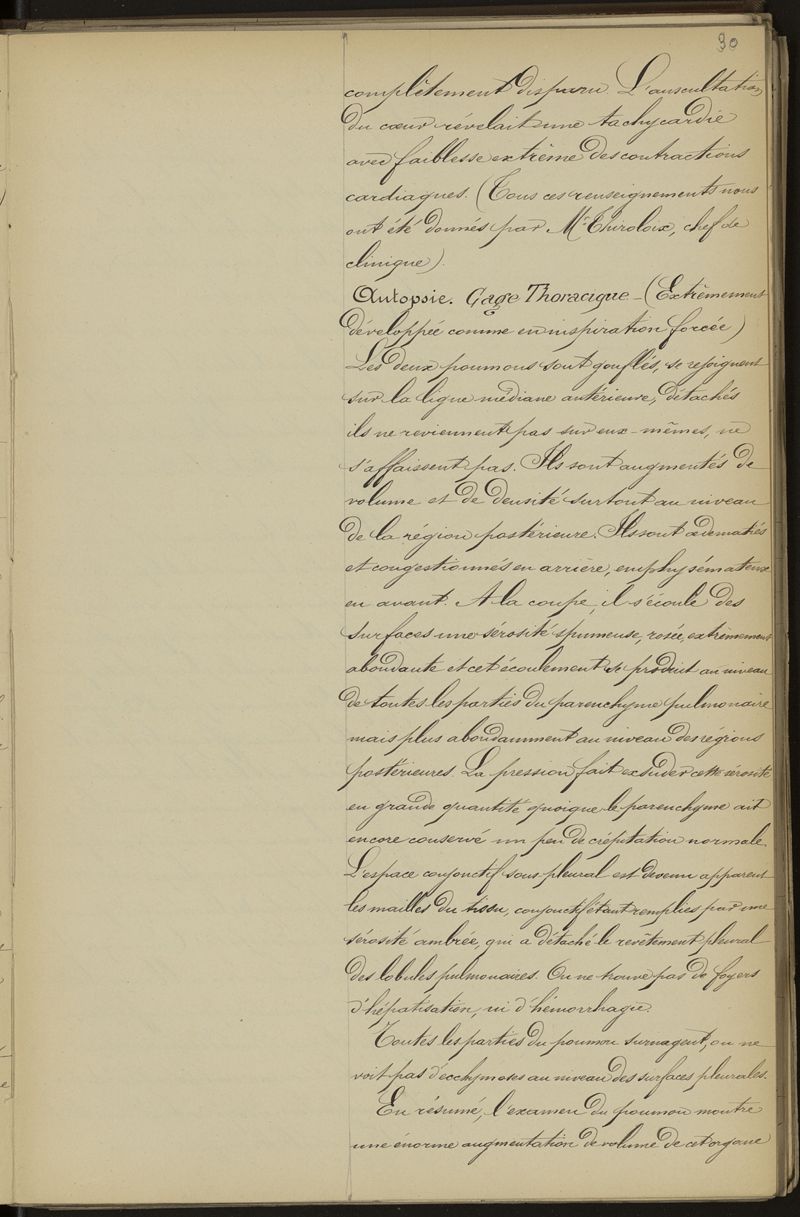 30
complètement disparu. L'auscultation
du cœur révélait une tachycardie
avec faiblesse extrême des contractions
cardiaques. (Tous ces renseignements nous
ont été donnés par Mr Thiroloix, chef de
clinique).
Autopsie. Cage Thoracique - (Extrêmement
développée comme en inspiration forcée)
Les deux poumons sont gonflés, se rejoignent
sur la ligne médiane antérieure, détachés
ils ne reviennent pas sur eux-mêmes, ne
s'affaissent pas. Ils sont augmentés de
volume et de densité surtout au niveau
de la région postérieure. Ils sont œdematiés
et congestionnés en arrière, emphysémateux
en avant. A la coupe, il s'écoule des
surfaces une sérosité spumeuse, rosée, extrêmement
abondante et cet écoulement se produit au niveau
de toutes les parties du parenchyme pulmonaire
mais plus abondamment au niveau des régions
postérieures. La pression fait exsuder cette sérosité
en grande quantité quoique le parenchyme ait
encore conservé un peu de crépitation normale.
L'espace conjonctif sous pleural est devenu apparent
les mailles du tissu, conjonctif étant remplies par une
sérosité ambrée, qui a détaché le revêtement pleural
des lobules pulmonaires. On ne trouve pas de foyers
d'hépatisation, ni d'hémorrhagie.
Toutes les parties du poumon surnagent, on ne
voit pas d'ecchymoses au niveau des surfaces pleurales.
En résumé, l'examen du poumon montre
une énorme augmentation de volume de cet organe